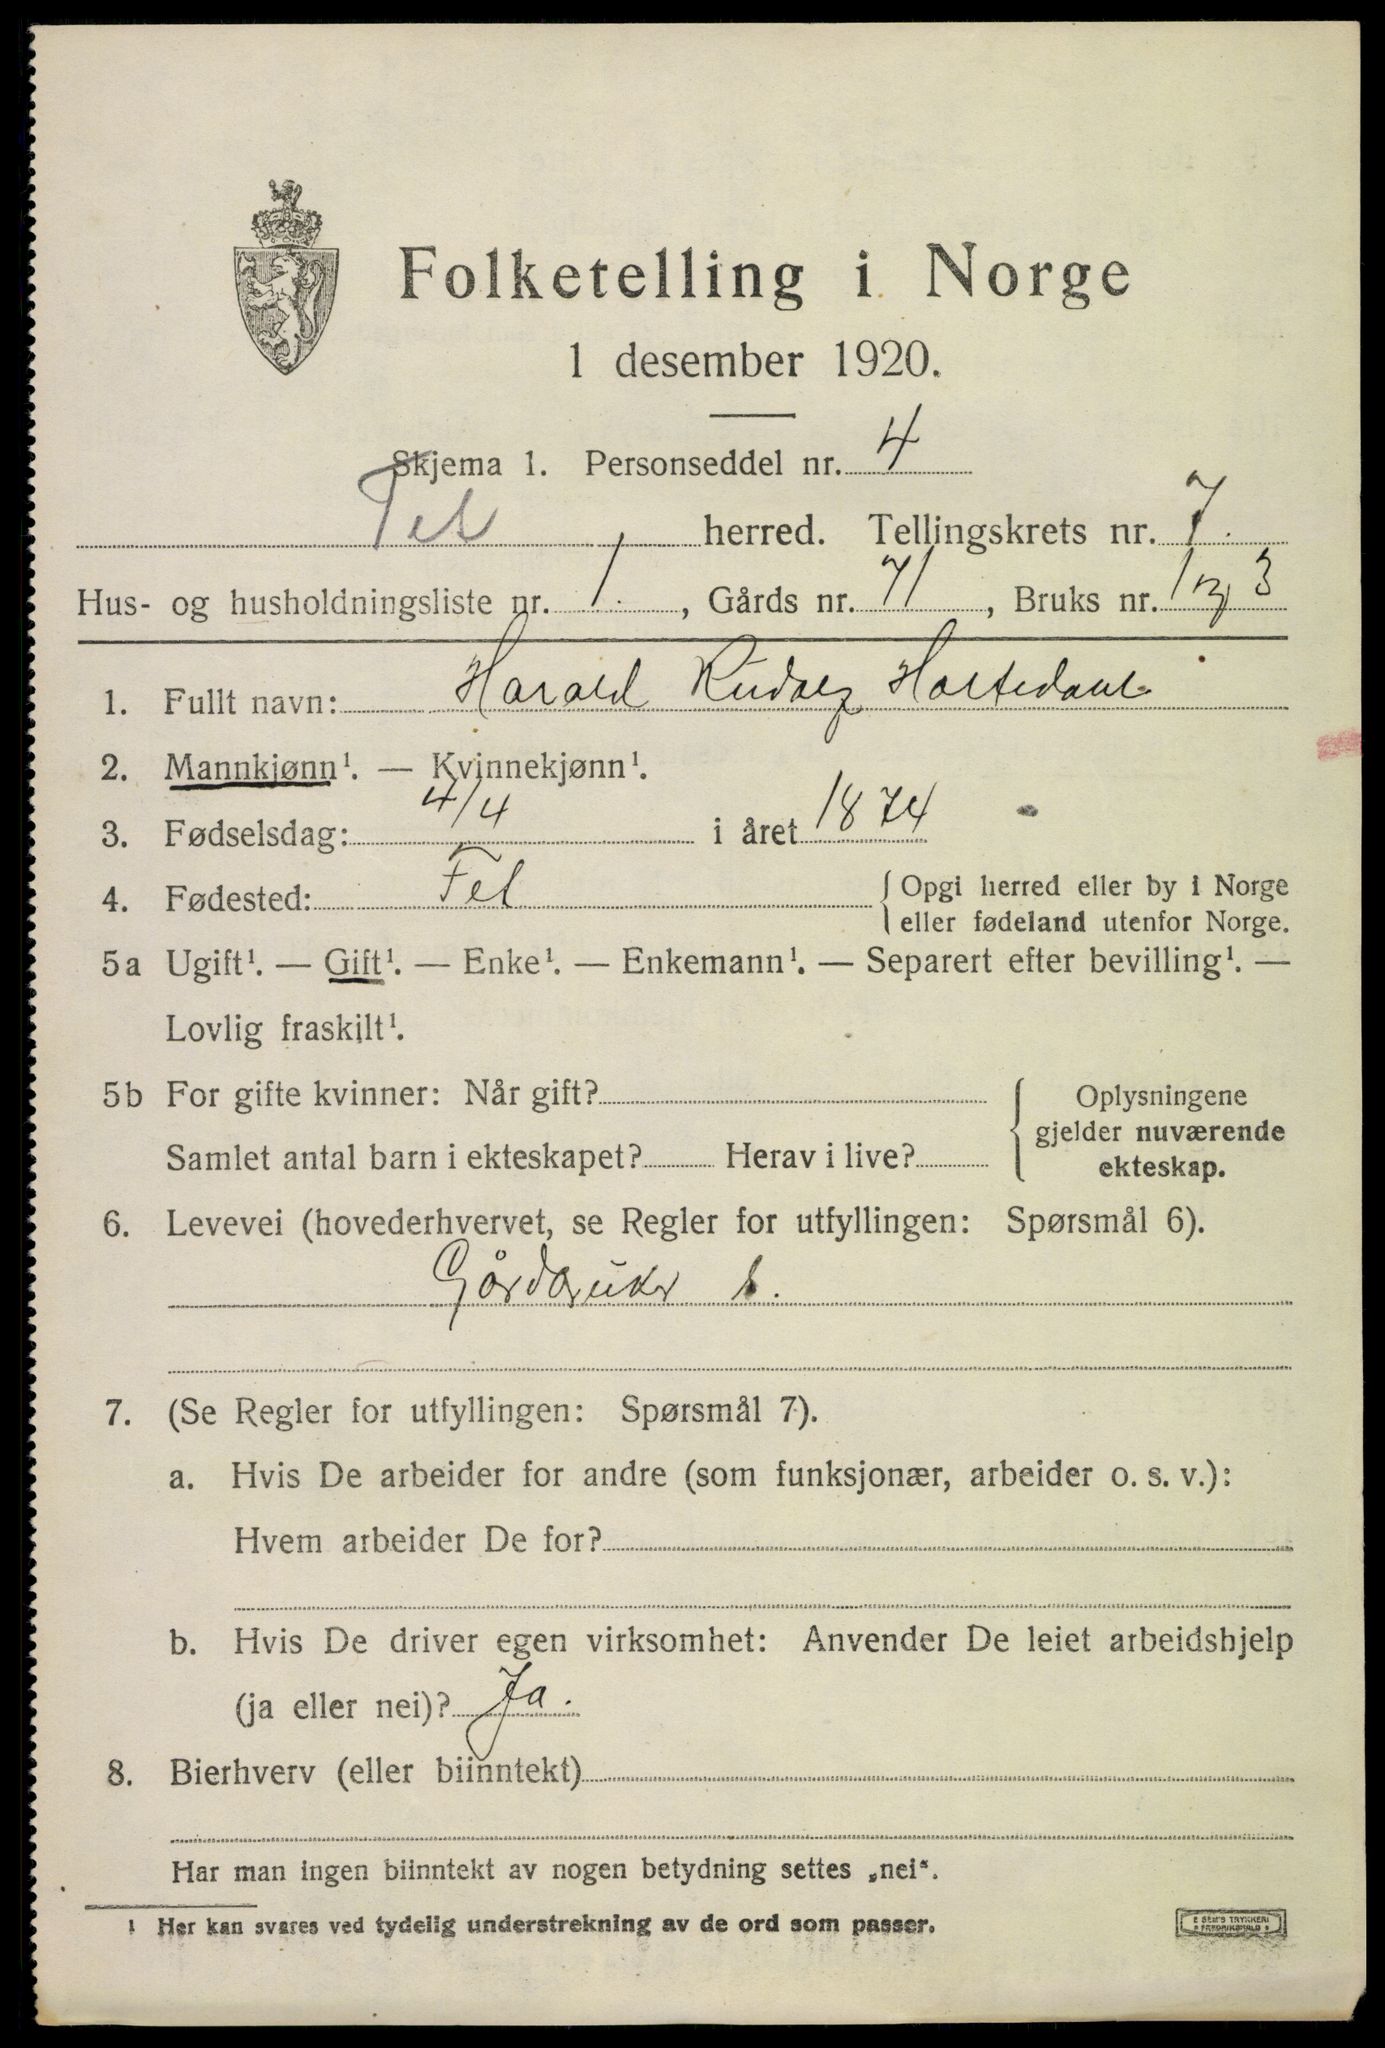 Folketelling i Norge
1 desember 1920.
Skjema 1. Personseddel nr. 4
Fet herred. Tellingskrets nr. 7.
Hus- og husholdningsliste nr. 1. , Gårds nr. 71 , Bruks nr. 1 og 3
1. Fullt navn: Harald Rudolf
2. Mannkjønn¹. — Kvinnekjønn¹.
3. Fødselsdag: 4/4 i året 1874
4. Fødested: Fet { Opgi herred eller by i Norge
eller fødeland utenfor Norge.
5a Ugift¹. — Gift¹. — Enke¹. — Enkemann¹. — Separert efter bevilling¹. —
Lovlig fraskilt¹.
5b For gifte kvinner: Når gift? { Oplysningene
gjelder nuværende
Samlet antal barn i ekteskapet? Herav i live?
ekteskap.
6. Levevei (hovederhvervet, se Regler for utfyllingen: Spørsmål 6).
Gårdbruker s.
7. (Se Regler for utfyllingen: Spørsmål 7).
a. Hvis De arbeider for andre (som funksjonær, arbeider o. s. v.):
Hvem arbeider De for?
b. Hvis De driver egen virksomhet: Anvender De leiet arbeidshjelp
(ja eller nei)? Ja.
8. Bierhverv (eller biinntekt)
Har man ingen biinntekt av nogen betydning settes „nei“.
1 Her kan svares ved tydelig understrekning av de ord som passer.
E SEM'S TRYKKERI
FREDRIKSHALD